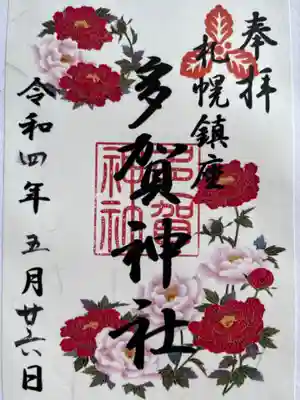 奉拝
札幌鎮座
多賀神社
多賀神社
令和四年 五月廿六日